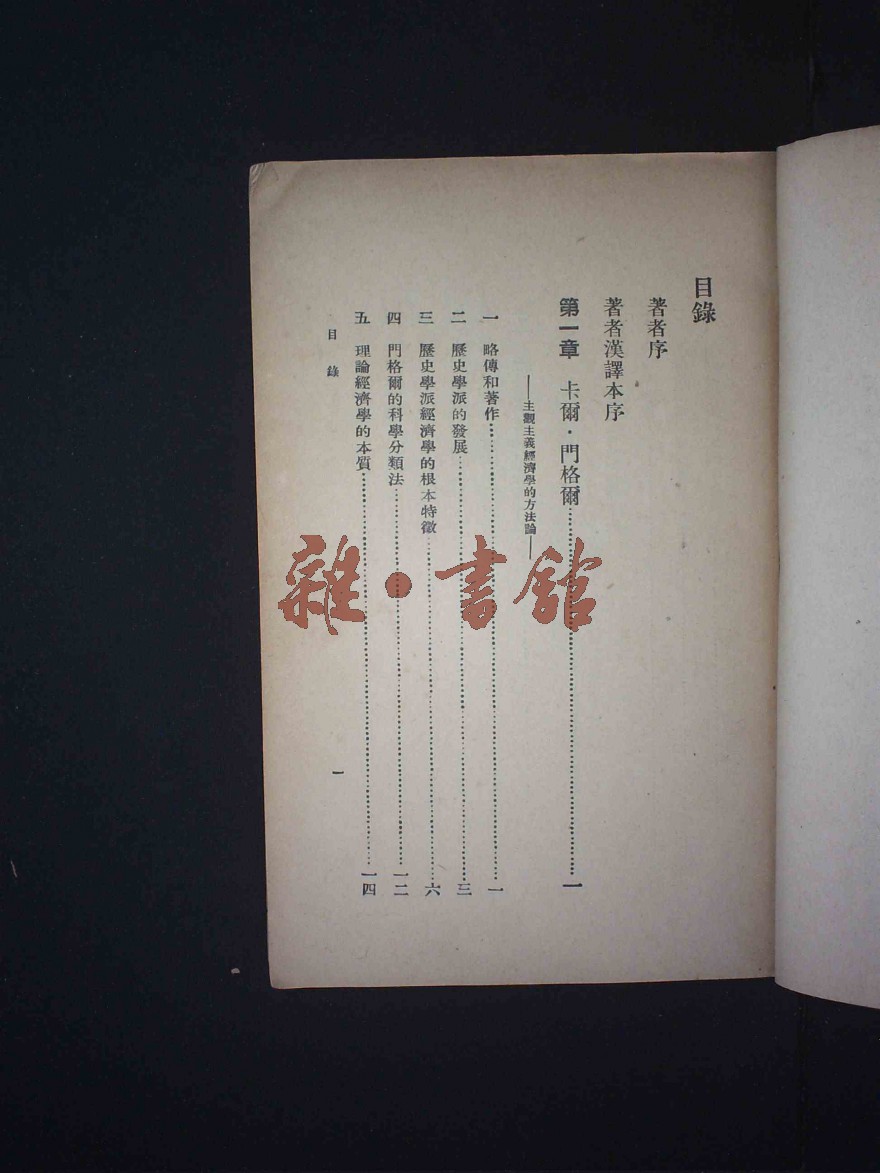 目錄
著者序
著者漢譯本序
第一章 卡爾·門格爾……一
——主觀主義經濟學的方法論——
一 略傳和著作……一
二 歷史學派的發展……三
三 歷史學派經濟學的根本特徵……六
四 門格爾的科學分類法……一二
五 理論經濟學的本質……一四
目錄 一
雜·書館